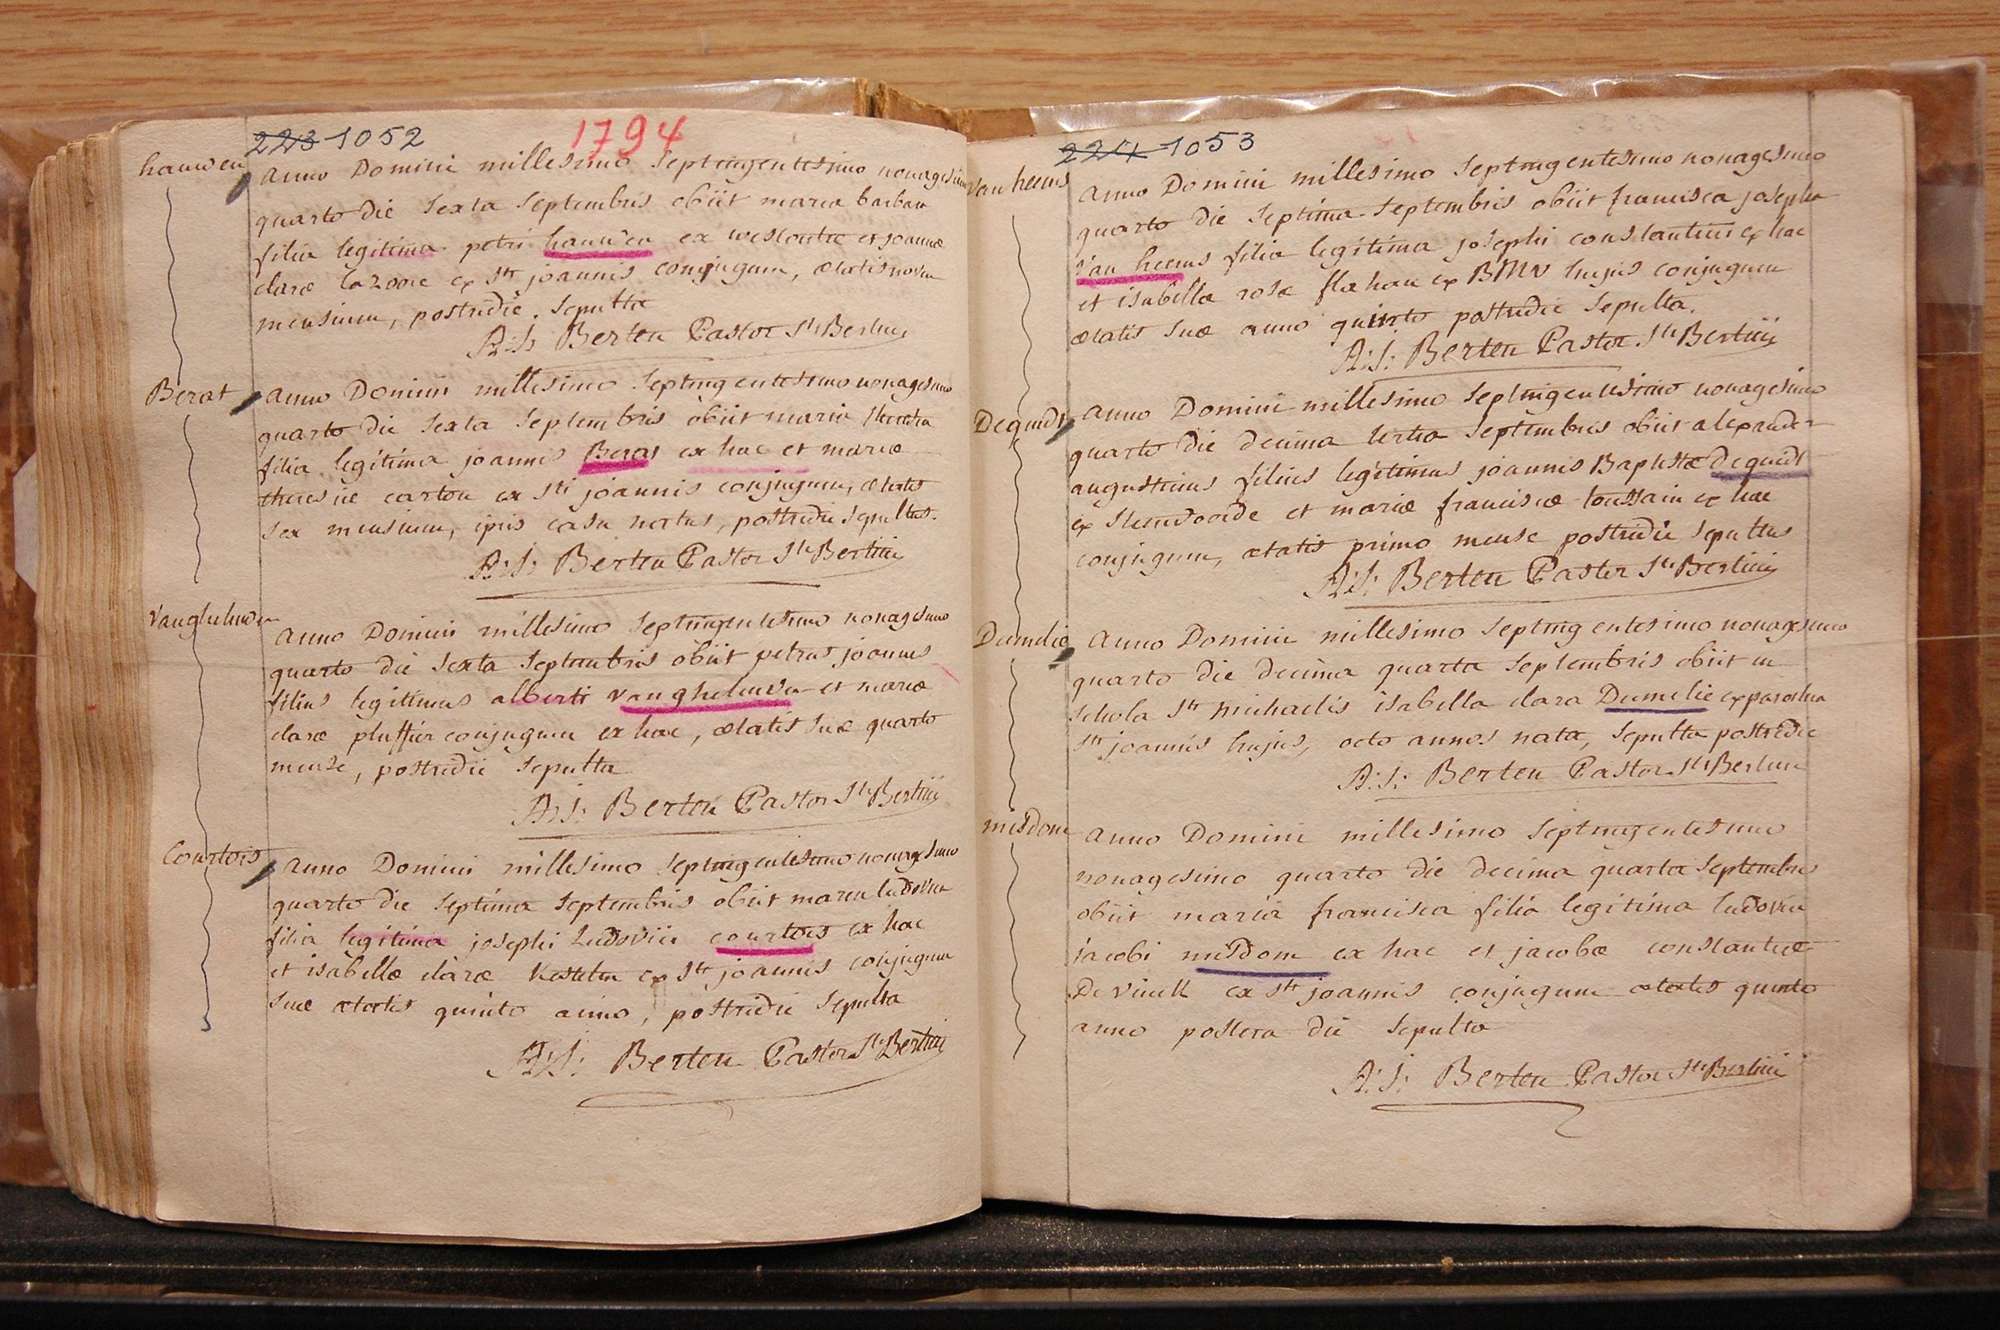 223 1052
1794
hauwen
Anno Domini millesimo Septingentesimo nonagesimo
quarto die Sexta Septembris obiit maria barbara
filia legitima petri hauwen ex westoutre et joannæ
claræ ex Sti joannis conjugum, ætatis novem
mensium, postridie Sepulta
A:J: Berten Pastor Sti Bertini
Berat
Anno Domini millesimo Septingentesimo nonagesimo
quarto die Sexta Septembris obiit maria
filia legitima joannis Berat ex hac et mariæ
theresiæ carton ex Sti joannis conjugum, ætatis
sex mensium, ipris casu natus, postridie Sepultus.
A:J: Berten Pastor Sti Bertini
Vangheluwen
Anno Domini millesimo Septingentesimo nonagesimo
quarto die Sexta Septembris obiit petrus joannes
filius legitimus alberti vangheluwen et mariæ
claræ conjugum ex hac, ætatis Suæ quarto
mense, postridie Sepulta
A:J: Berten Pastor Sti Bertini
Courtois
Anno Domini millesimo Septingentesimo nonagesimo
quarto die Septima Septembris obiit maria ludovica
filia legitima josephi Ludovici courtois ex hac
et isabellæ claræ ex Sti joannis conjugum
Suæ ætatis quinto anno, postridie Sepulta
A:J: Berten Pastor Sti Bertini
224 1053
Van heems
Anno Domini millesimo Septingentesimo nonagesimo
quarto die Septima Septembris obiit francisca josepha
Van heems filia legitima josephi constantini ex hac
et isabellæ rosæ flahau ex BMV hujus conjugum
ætatis Suæ anno quinto postridie Sepulta.
A:J: Berten Pastor Sti Bertini
Dequidt
Anno Domini millesimo Septingentesimo nonagesimo
quarto die decima tertia Septembris obiit alexander
augustinus filius legitimus joannis Baptistæ dequidt
ex Steenvoorde et mariæ franciscæ toussain ex hac
conjugum, ætatis primo mense postridie Sepultus
A:J: Berten Pastor Sti Bertini
Dumelie
Anno Domini millesimo Septingentesimo nonagesimo
quarto die decima quarta Septembris obiit in
Schola Sti Michaelis isabella clara Dumelie ex parochia
Sti joannis hujus, octo annos nata, Sepulta postridie
A:J: Berten Pastor Sti Bertini
misdom
Anno Domini millesimo Septingentesimo
nonagesimo quarto die decima quarta Septembris
obiit maria francisca filia legitima ludovici
jacobi misdom ex hac et jacobæ constantiæ
De vinck ex Sti joannis conjugum ætatis quinto
anno postera die Sepulta
A:J: Berten Pastor Sti Bertini